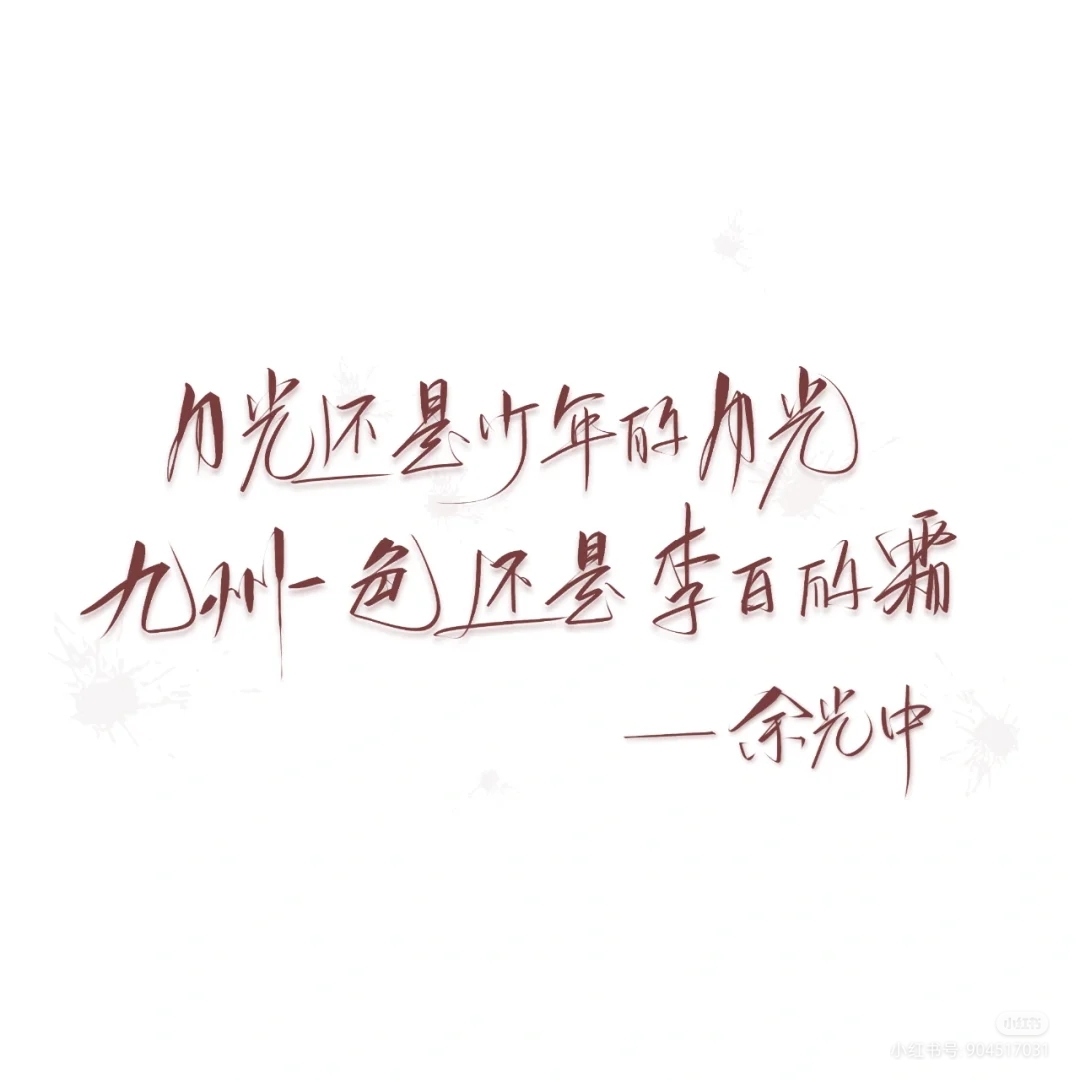 月光还是少年的月光
九州一色还是李白的霜
——余光中
小红书
小红书号:904517031